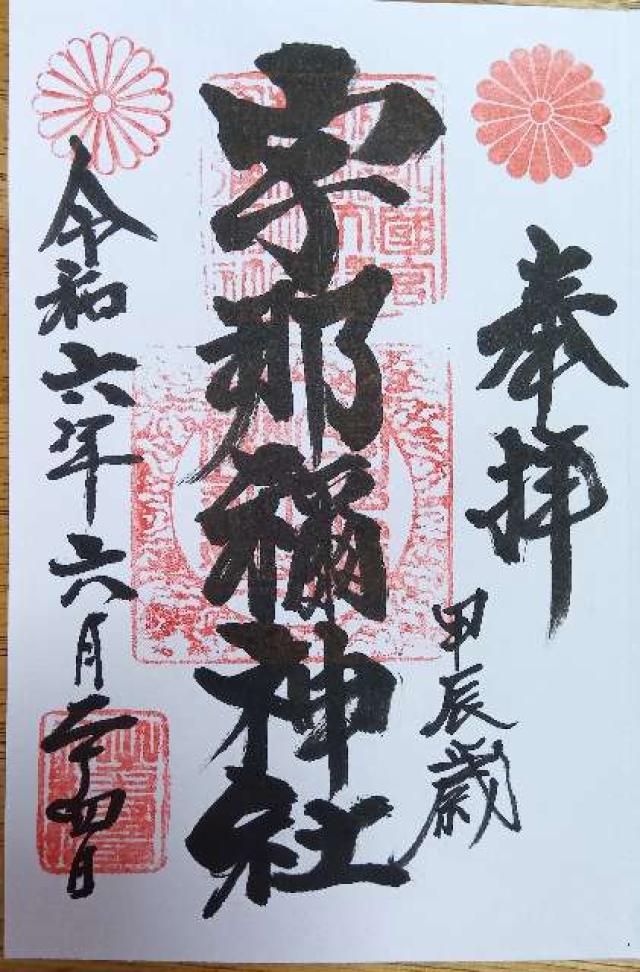 奉拝
甲辰歳
宇那禰神社
令和六年六月二十四日